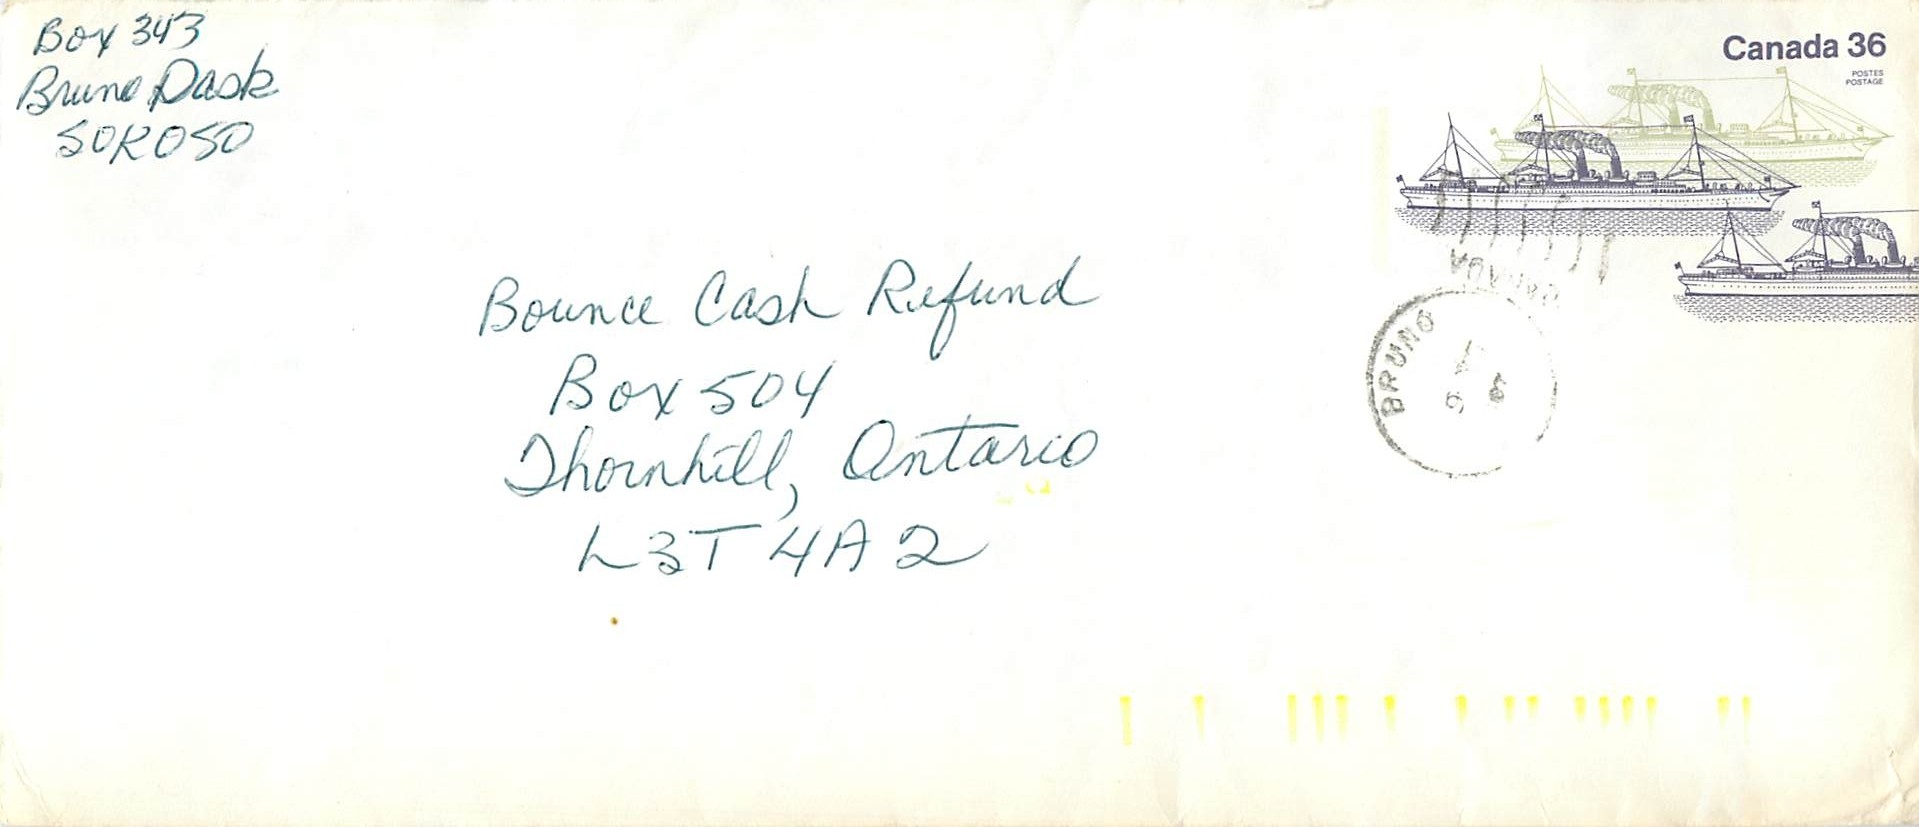 Box 343
Bruno Sask
S0K0S0
Canada 36
POSTES
POSTAGE
Bounce Cash Refund
Box 504
Thornhill, Ontario
L3T 4A2
CANADA
BRUNO